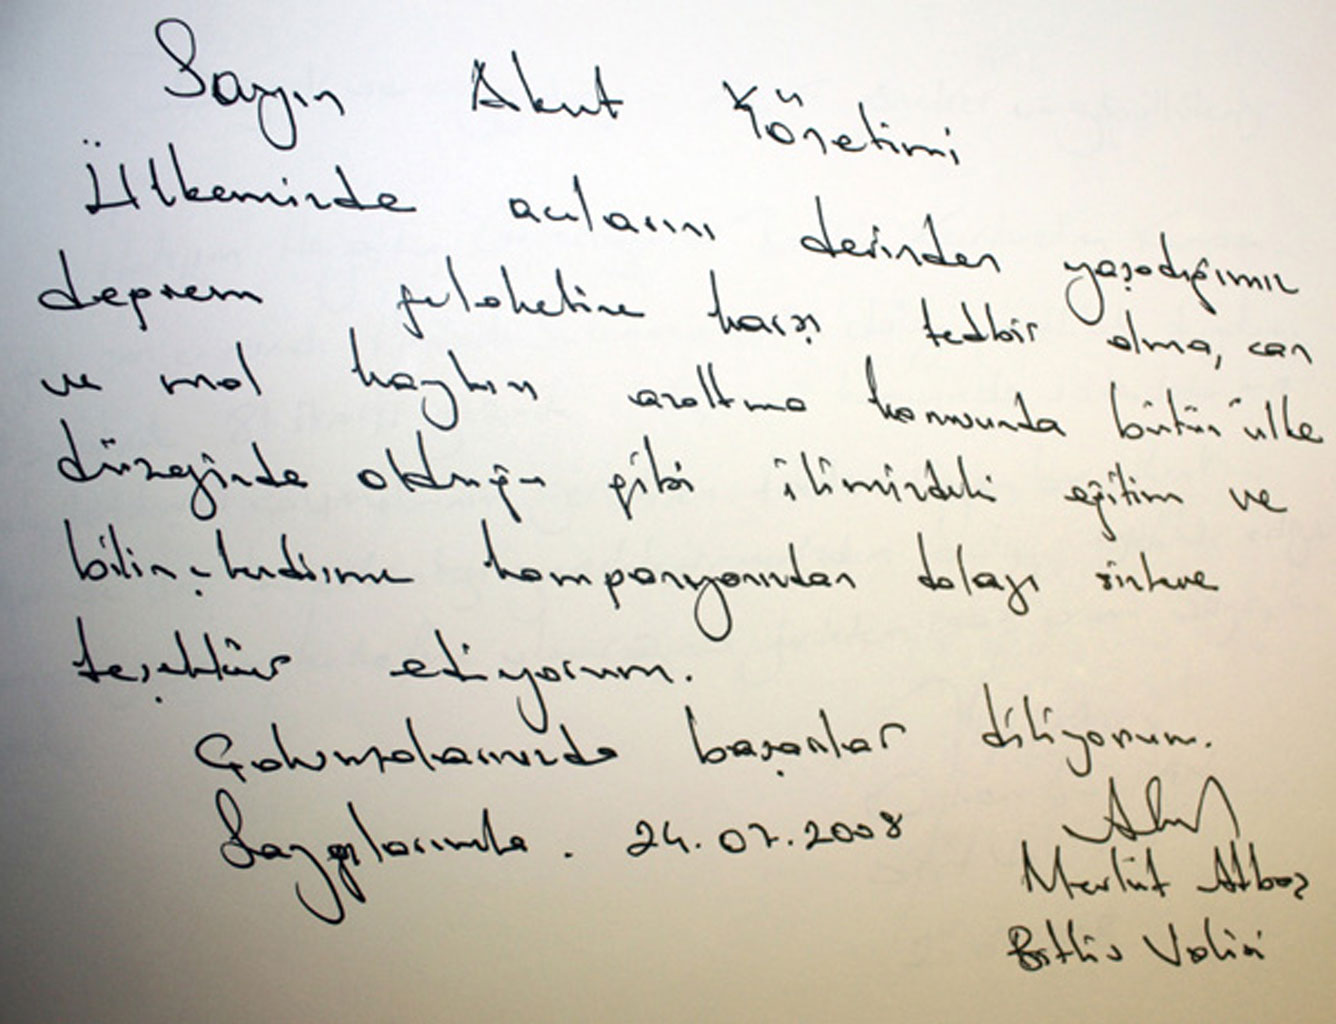 Sayın Akut Yönetimi
Ülkemizde acılarını derinden yaşadığımız
deprem felaketine karşı tedbir alma, can
ve mal kaybını azaltma konusunda bütün ülke
düzeyinde olduğu gibi ilimizdeki eğitim ve
bilinçlendirme kampanyanızdan dolayı sizlere
teşekkür ediyorum.
Çalışmalarınızda başarılar diliyorum.
Saygılarımla. 24.07.2008
Mevlüt Atbaş
Bitlis Valisi